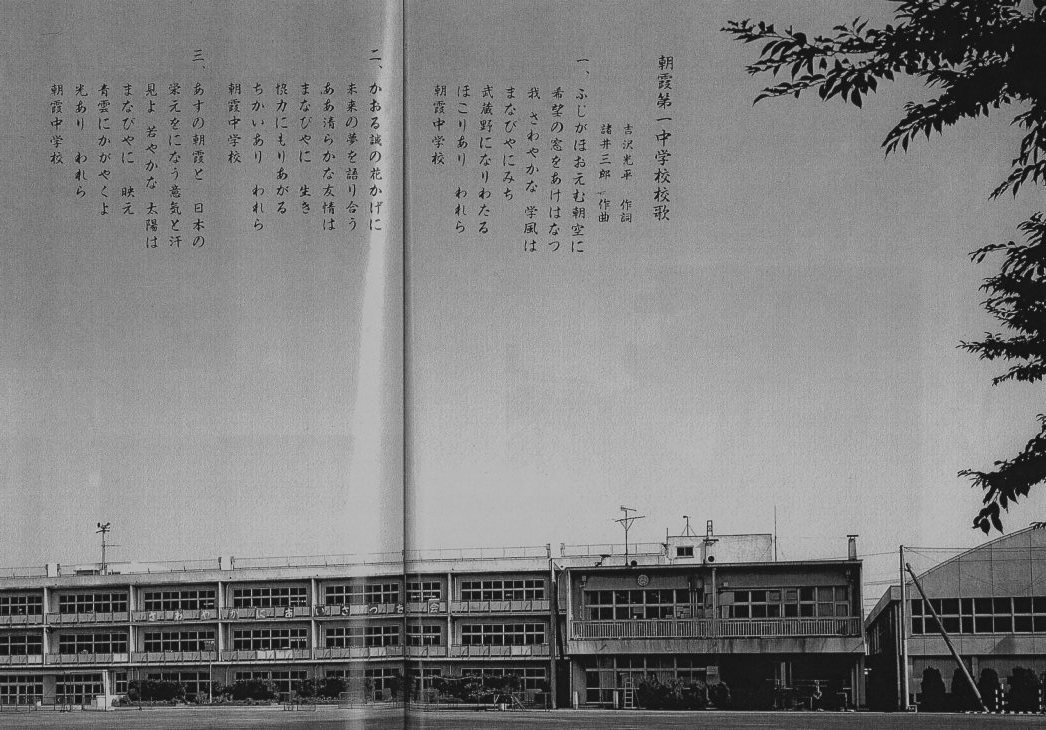 朝霞第一中学校校歌
吉沢光平 作詞
諸井三郎 作曲
一、ふじがほおえむ朝空に
希望の窓をあけはなつ
我 さわやかな 学風は
まなびやにみち
武蔵野になりわたる
ほこりあり われら
朝霞中学校
二、かおる誠の花かげに
未来の夢を語り合う
ああ清らかな友情は
まなびやに 生き
恨力にもりあがる
ちかいあり われら
朝霞中学校
三、あすの朝霞と 日本の
栄えをになう意気と汗
見よ 若やかな 太陽は
まなびやに 映え
青雲にかがやくよ
光あり われら
朝霞中学校
さわやかにあいさつ